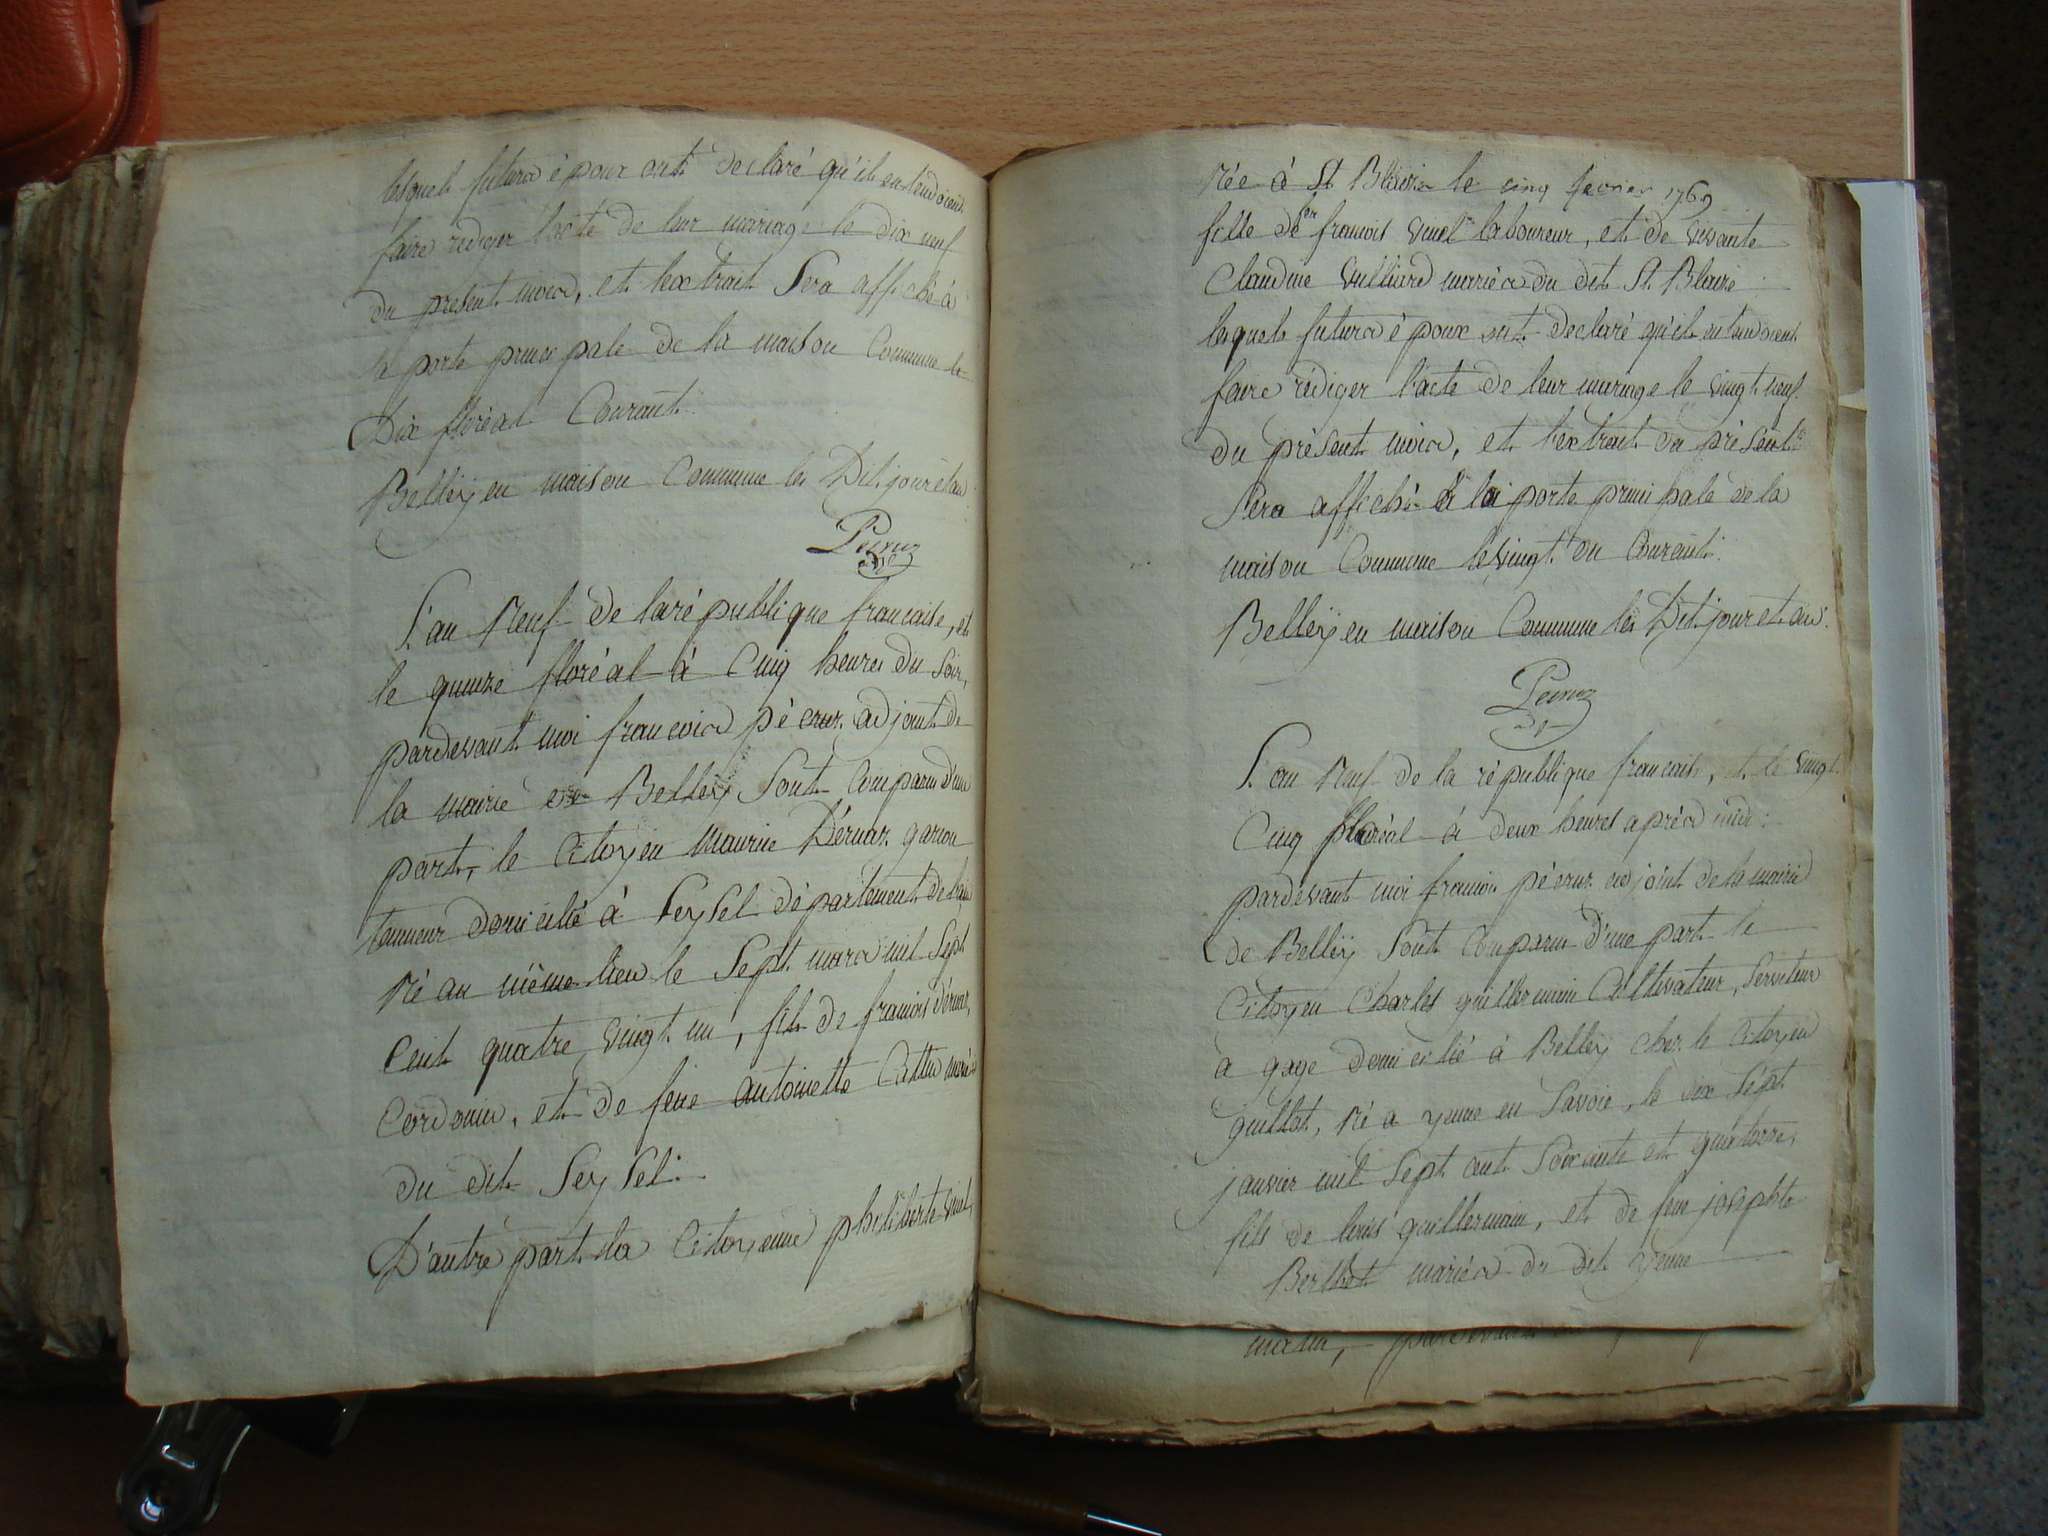 lesquels futurs époux ont declaré qu'ils entendoient
faire rediger l'acte de leur mariage le dix neuf
du present mois, et l'extrait Sera affiché à
la porte principale de la maison Commune le
Dix floréal Courant
Belleÿ en maison Commune les Dit jour et an
Peÿruz
L'an Neuf de la république francaise, et
le quinze floréal à Cinq heures du Soir,
pardevant moi francois péÿruz adjoint de
la mairie de Belleÿ Sont Comparu d'une
part, le Citoyen Maurice Dérnaz garcon
tanneur domicilié à Seysel département de l'ain
Né au même lieu le Sept mars mil Sept
Cent quatre vingt un, fils de francois dérnaz,
Cordonier, et de feue antoinette mariés
du dit Seysel.
D'autre part la Citoyenne philiberte vinel
Née à St Blaise le cinq fevrier 1769
fille de feu francois vinel laboureur, et de vivante
Claudine vulliard mariés du dit St Blaise
lesquels futurs époux ont declaré qu'ils entendoient
faire rédiger l'acte de leur mariage le vingt neuf
du présent mois, et l'extrait du présent
Sera affiché à la porte principale de la
maison Commune le vingt du Courant.
Belleÿ en maison Commune les Dit jour et an.
Peÿruz
L'an Neuf de la république francaise, et le vingt
Cinq floréal à deux heures après midi
pardevant moi francois péÿruz adjoint de la mairie
de Belleÿ Sont Comparu d'une part le
Citoyen Charles guillermin Cultivateur, Serviteur
a gage domicilié à Belleÿ chez le Citoyen
guillot, Né a yenne en Savoie, le six Sept
janvier mil Sept cent Soixante et quatorze,
fils de louis guillermin, et de feue josephte
Berthet mariés du dit yenne
matin, pardevant